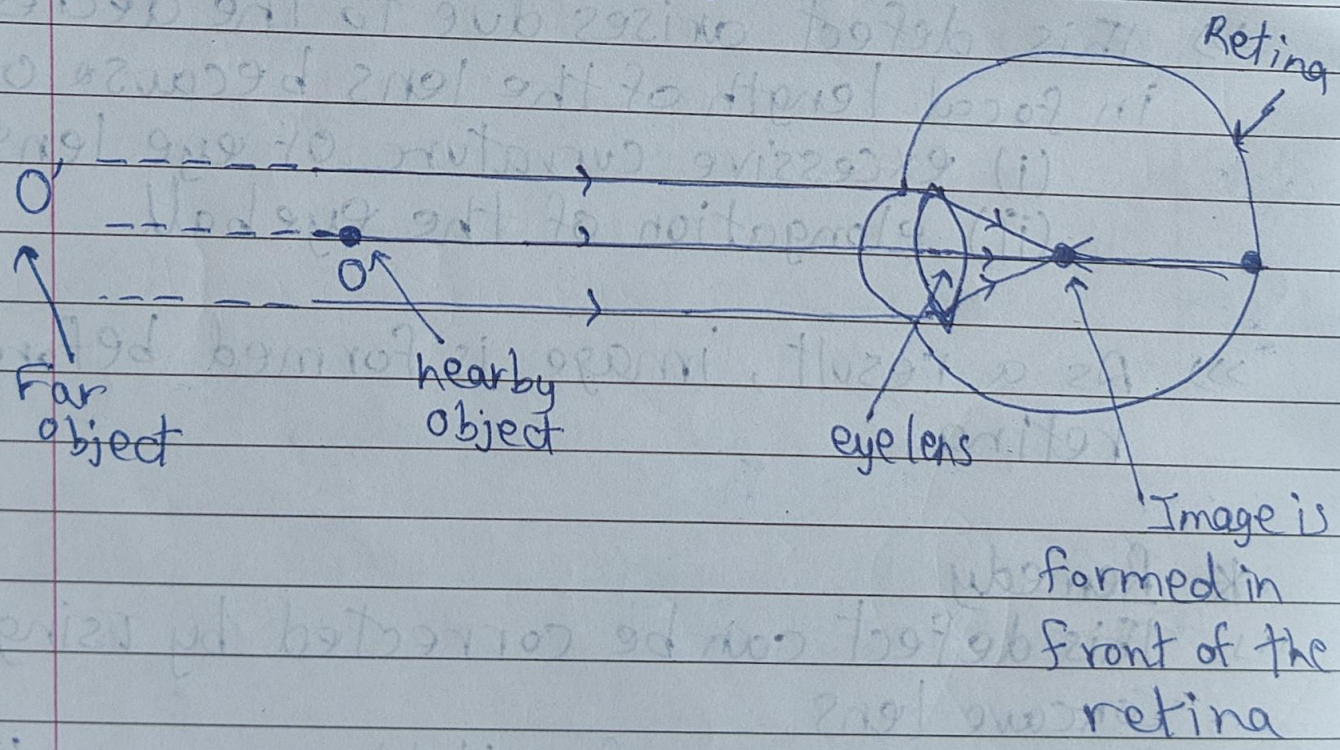 Retina
O'
O
Far
object
nearby
object
eye lens
Image is
formed in
front of the
retina